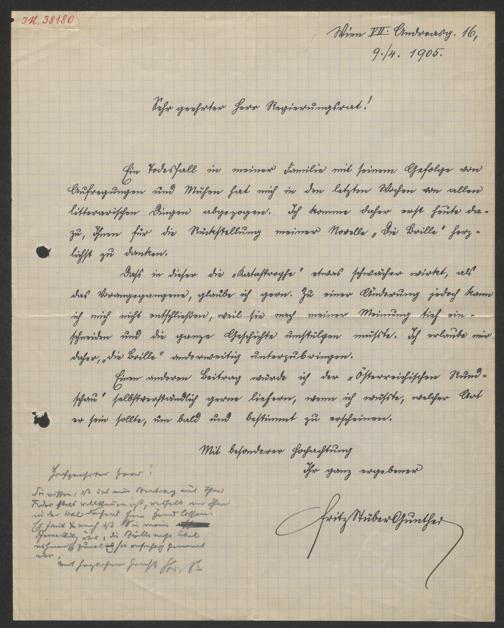 IN. 38180
Wien VII. Andreasg. 16,
9./4. 1905.
Sehr geehrter Herr Regierungsrat!
Ein Todesfall in meiner Familie mit seinem Gefolge von
Aufregungen und Mühen hat mich in den letzten Wochen von allen
litterarischen Dingen abgezogen. Ich komme daher erst heute da-
zu, Ihnen für die Rückstellung meiner Novelle „Die Brille" herz-
lichst zu danken.
Dass in dieser die „Katastrophe" etwas schwächer wirkt, als
das Vorangegangene, glaube ich gern. Zu einer Änderung jedoch kann
ich mich nicht entschließen, weil sie nach meiner Meinung tief ein-
schneiden und die ganze Geschichte umstülpen müsste. Ich erlaube mir
daher, „die Brille" anderweitig unterzubringen.
Einen anderen Beitrag würde ich der „Österreichischen Rund-
schau" selbstverständlich gerne liefern, wenn ich wüsste, welcher Art
er sein sollte, um bald und bestimmt zu erscheinen.
Mit besonderer Hochachtung
Ihr ganz ergebener
Fritz Stüber Gunther
Hochgeehrter Herr!
Sie wissen, daß uns ein Beitrag aus Ihrer
Feder stets willkommen ist,